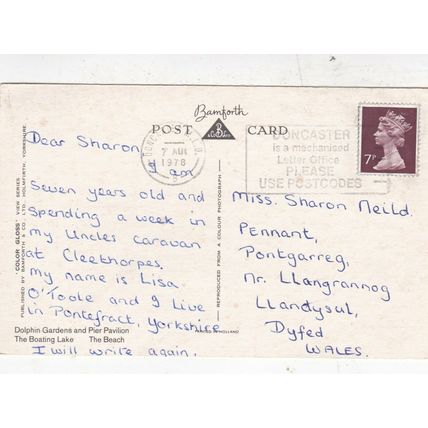 Bamforth
POST CARD
7 AUG
1978
DONCASTER
is a mechanised
Letter Office
PLEASE
USE POSTCODES
7P
Dear Sharon
I am
Seven years old and
Spending a week in
my Uncles caravan
at Cleethorpes.
my name is Lisa.
O'Toole and I Live
in Pontefract, Yorkshire
I will write again.
Dolphin Gardens and Pier Pavilion
The Boating Lake The Beach
"COLOR GLOSS" VIEW SERIES
PUBLISHED BY BAMFORTH & CO. LTD. HOLMFIRTH, YORKSHIRE
REPRODUCED FROM A COLOUR PHOTOGRAPH
PRINTED IN HOLLAND
Miss. Sharon Neild.
Pennant,
Pontgarreg,
Nr. Llangrannog
Llandysul,
Dyfed
WALES.